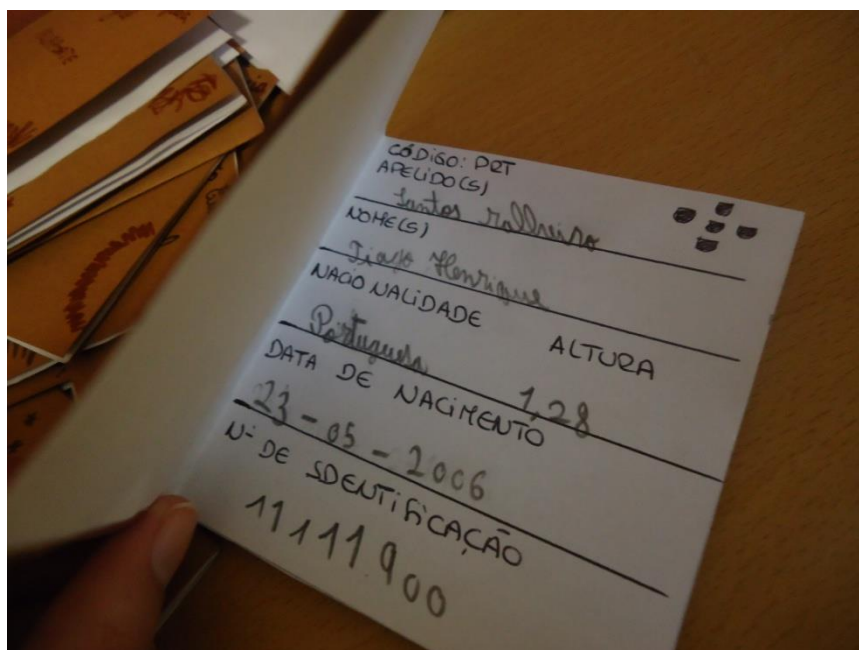 CÓDIGO: PRT
APELIDO(S)
Santos
NOME(S)
Tiago Henrique
NACIONALIDADE ALTURA
Portuguesa 1,28
DATA DE NACIMENTO
23-05-2006
Nº DE IDENTIFICAÇÃO
11111900